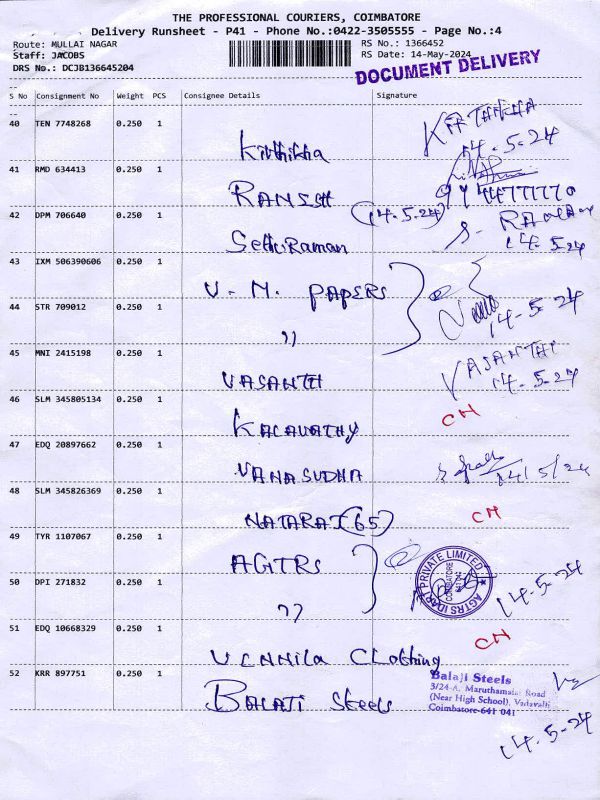 THE PROFESSIONAL COURIERS, COIMBATORE
Delivery Runsheet - P41 - Phone No.:0422-3505555 - Page No.:4
Route: MULLAI NAGAR
RS No.: 1366452
Staff: JACOBS
RS Date: 14-May-2024
DRS No.: DCJB136645204
DOCUMENT DELIVERY
S No Consignment No Weight PCS Consignee Details Signature
40 TEN 7748268 0.250 1
Kiruthikha KIRTHIKHA
14.5.24
41 RMD 634413 0.250 1
RANJITH
42 DPM 706640 0.250 1 (14.5.24)
SethuRaman 14.5.24
43 IXM 506390606 0.250 1
V.M. PAPERS
44 STR 709012 0.250 1 14-5-24
,,
45 MNI 2415198 0.250 1 VASANTHI
VASANTH 14.5.24
46 SLM 345805134 0.250 1
KALAVATHY CN
47 EDQ 20897662 0.250 1
VANASUDHA 14/5/24
48 SLM 345826369 0.250 1
NATARAJ (65) CN
49 TYR 1107067 0.250 1
AGTRS
50 DPI 271832 0.250 1 PRIVATE LIMITED COIMBATORE AGTRS 14.5.24
,,
51 EDQ 10668329 0.250 1
VENNILA Clothing CN
52 KRR 897751 0.250 1
BALAJI Steels
Balaji Steels
3/24-A, Maruthamalai Road
(Near High School), Vadavalli
Coimbatore-641 041
14.5.24